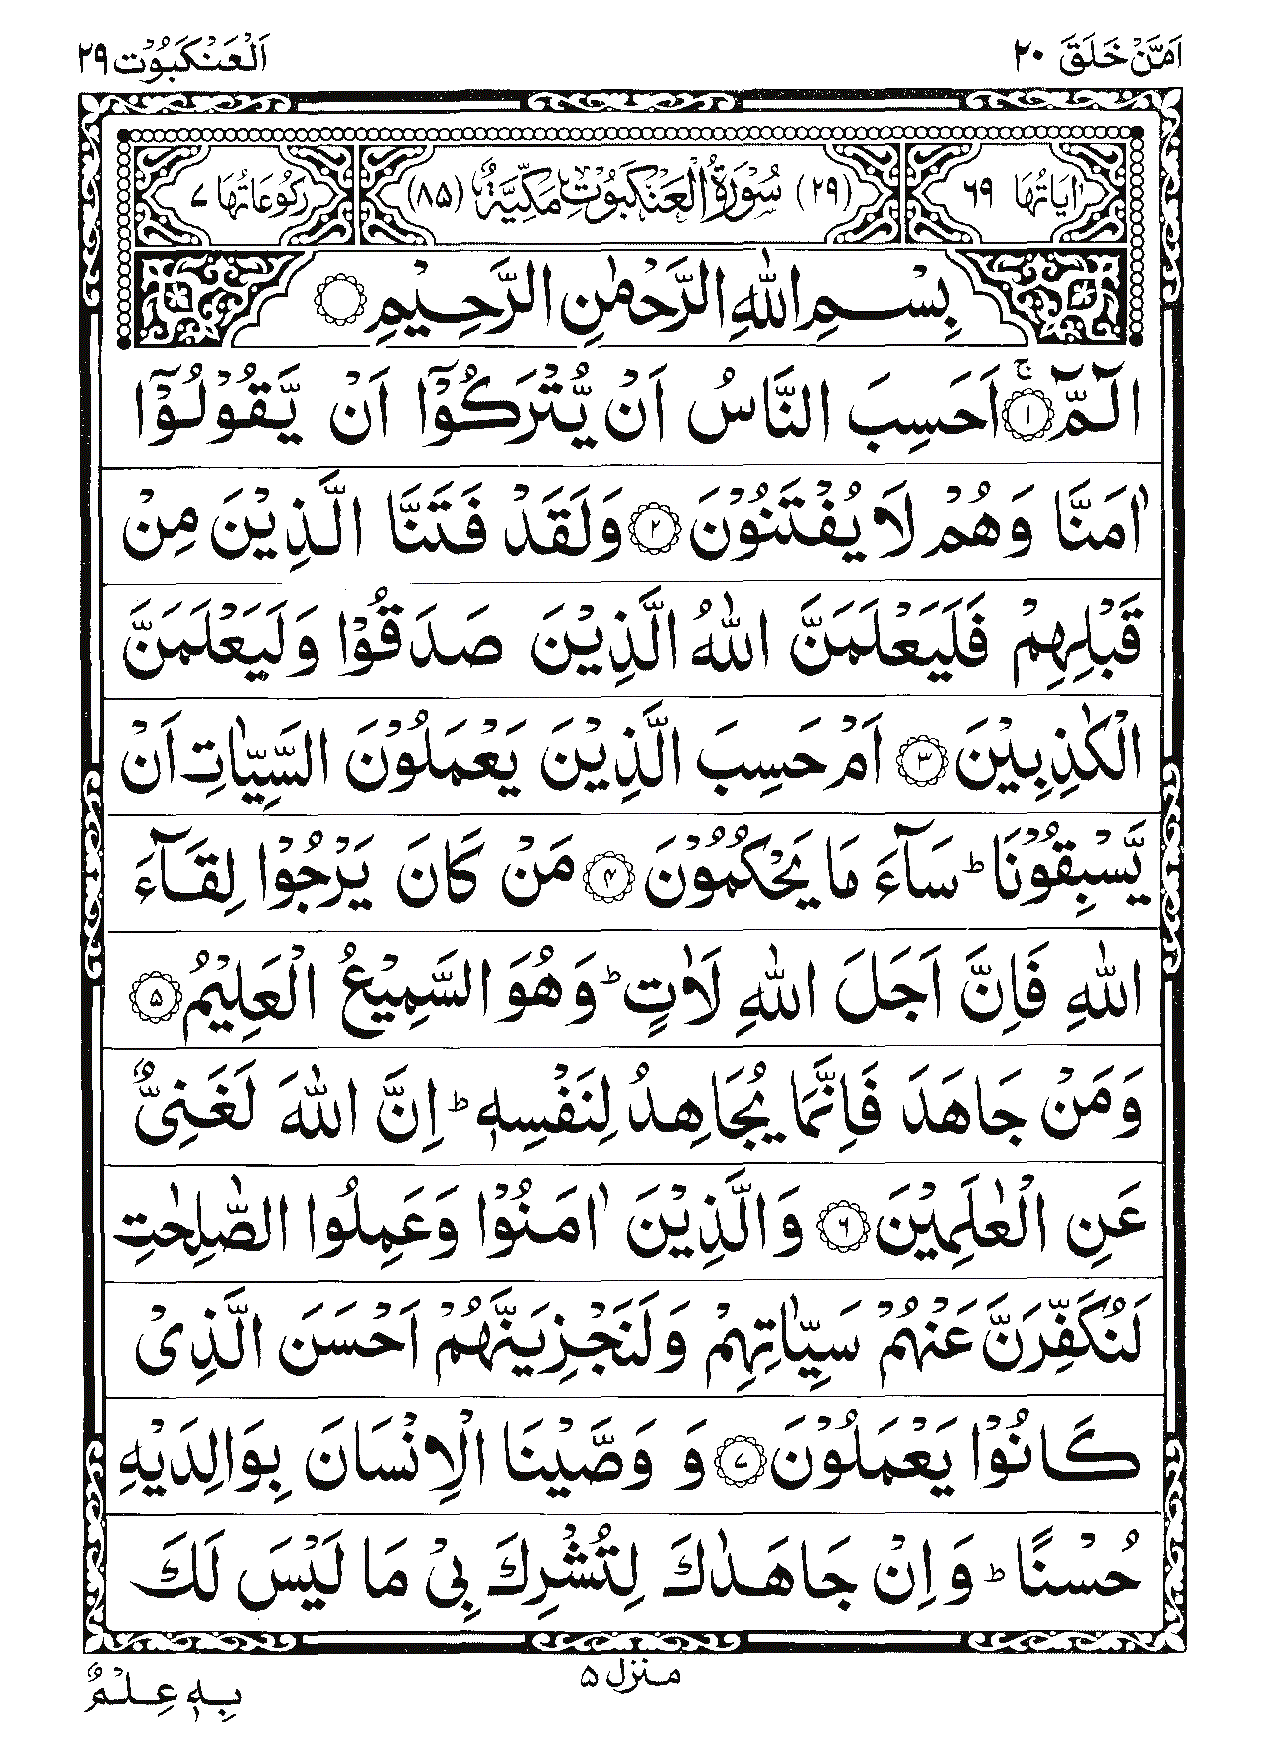 اَمَّنۡ خَلَقَ ۲۰ اَلۡعَنۡکَبُوۡت ۲۹
اٰیَاتُهَا ۶۹ (۲۹) سُوۡرَۃُ الۡعَنۡکَبُوۡتِ مَکِّیَّۃٌ (۸۵) رُکُوۡعَاتُهَا ۷
بِسۡمِ اللّٰهِ الرَّحۡمٰنِ الرَّحِیۡمِ ۝
الٓـمّٓ ۚ﴿۱﴾ اَحَسِبَ النَّاسُ اَنۡ یُّتۡرَکُوۡۤا اَنۡ یَّقُوۡلُوۡۤا
اٰمَنَّا وَهُمۡ لَا یُفۡتَنُوۡنَ ﴿۲﴾ وَلَقَدۡ فَتَنَّا الَّذِیۡنَ مِنۡ
قَبۡلِهِمۡ فَلَیَعۡلَمَنَّ اللّٰهُ الَّذِیۡنَ صَدَقُوۡا وَلَیَعۡلَمَنَّ
الۡکٰذِبِیۡنَ ﴿۳﴾ اَمۡ حَسِبَ الَّذِیۡنَ یَعۡمَلُوۡنَ السَّیِّاٰتِ اَنۡ
یَّسۡبِقُوۡنَا ؕ سَآءَ مَا یَحۡکُمُوۡنَ ﴿۴﴾ مَنۡ کَانَ یَرۡجُوۡا لِقَآءَ
اللّٰهِ فَاِنَّ اَجَلَ اللّٰهِ لَاٰتٍ ؕ وَهُوَ السَّمِیۡعُ الۡعَلِیۡمُ ﴿۵﴾
وَمَنۡ جَاهَدَ فَاِنَّمَا یُجَاهِدُ لِنَفۡسِهٖ ؕ اِنَّ اللّٰهَ لَغَنِیٌّ
عَنِ الۡعٰلَمِیۡنَ ﴿۶﴾ وَالَّذِیۡنَ اٰمَنُوۡا وَعَمِلُوا الصّٰلِحٰتِ
لَنُکَفِّرَنَّ عَنۡهُمۡ سَیِّاٰتِهِمۡ وَلَنَجۡزِیَنَّهُمۡ اَحۡسَنَ الَّذِیۡ
کَانُوۡا یَعۡمَلُوۡنَ ﴿۷﴾ وَ وَصَّیۡنَا الۡاِنۡسَانَ بِوَالِدَیۡهِ
حُسۡنًا ؕ وَ اِنۡ جَاهَدٰکَ لِتُشۡرِکَ بِیۡ مَا لَیۡسَ لَکَ
منزل ۵
بِهٖ عِلۡمٌ